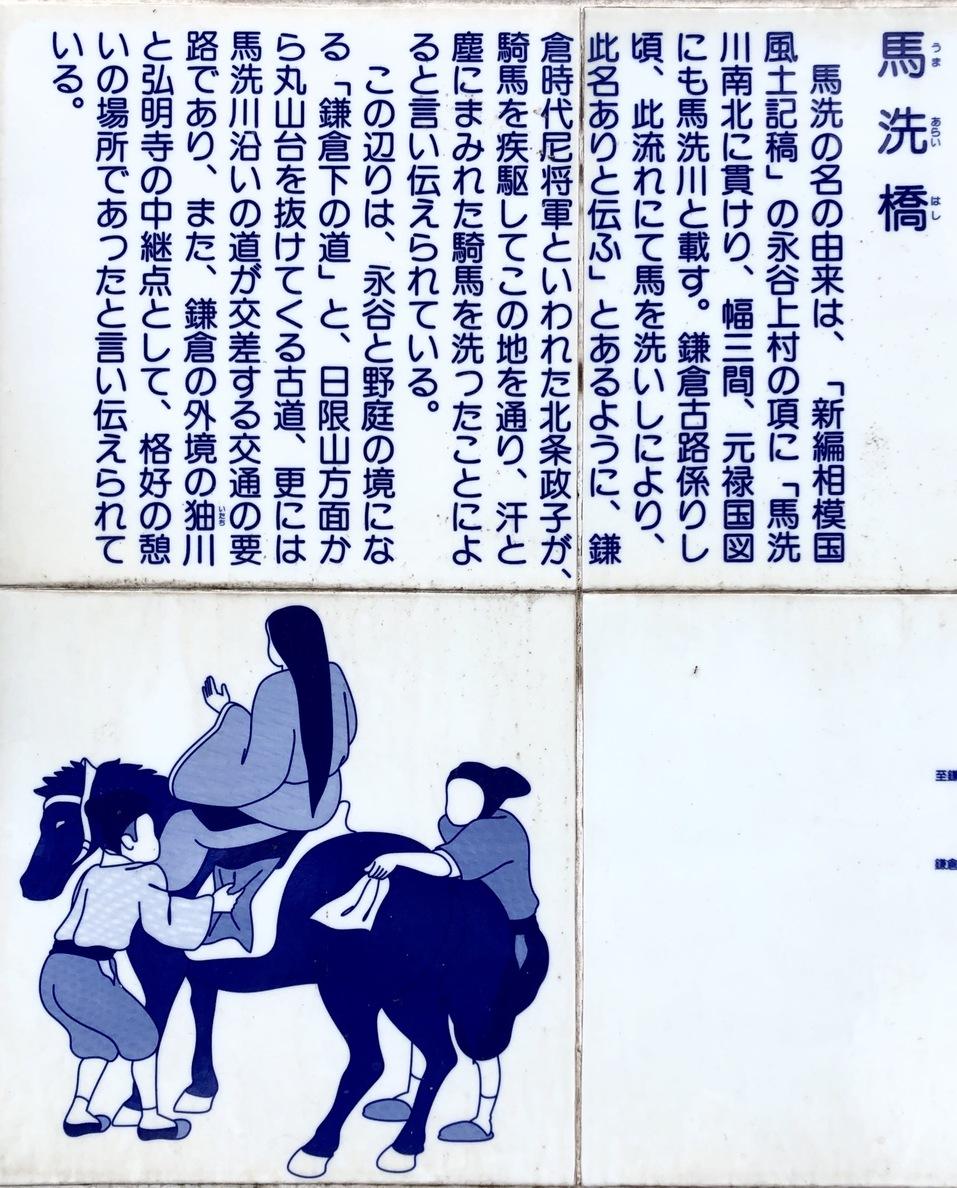 馬洗橋
うま あらい はし
馬洗の名の由来は、「新編相模国
風土記稿」の永谷上村の項に「馬洗
川南北に貫けり、幅三間、元禄国図
にも馬洗川と載す。鎌倉古路係りし
頃、此流れにて馬を洗いしにより、
此名ありと伝ふ」とあるように、鎌
倉時代尼将軍といわれた北条政子が、
騎馬を疾駆してこの地を通り、汗と
塵にまみれた騎馬を洗つたことによ
ると言い伝えられている。
この辺りは、永谷と野庭の境にな
る「鎌倉下の道」と、日限山方面か
ら丸山台を抜けてくる古道、更には
馬洗川沿いの道が交差する交通の要
路であり、また、鎌倉の外境の㹨川
いたち
と弘明寺の中継点として、格好の憩
いの場所であつたと言い伝えられて
いる。
至鎌
鎌倉